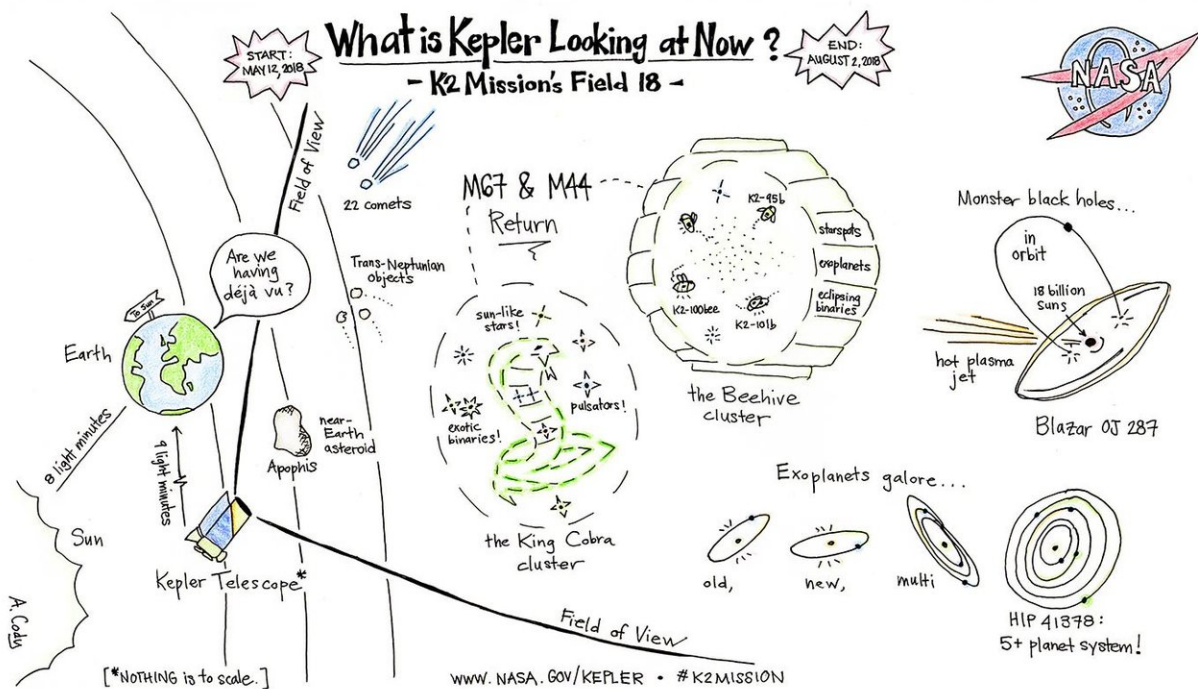 What is Kepler Looking at Now?
- K2 Mission's Field 18 -
START:
MAY 12, 2018
END:
AUGUST 2, 2018
NASA
Field of View
22 comets
Trans-Neptunian
objects
Are we
having
déjà vu?
To Sun
Earth
8 light minutes
9 light minutes
Sun
near-
Earth
asteroid
Apophis
Kepler Telescope*
M67 & M44
Return
sun-like
stars!
pulsators!
exotic
binaries!
the King Cobra
cluster
K2-95b
K2-100bee
K2-101b
starspots
exoplanets
eclipsing
binaries
the Beehive
cluster
Monster black holes...
in
orbit
18 billion
suns
hot plasma
jet
Blazar OJ 287
Exoplanets galore...
old,
new,
multi
HIP 41378:
5+ planet system!
Field of View
A. Cody
[*NOTHING is to scale.]
WWW.NASA.GOV/KEPLER • #K2MISSION